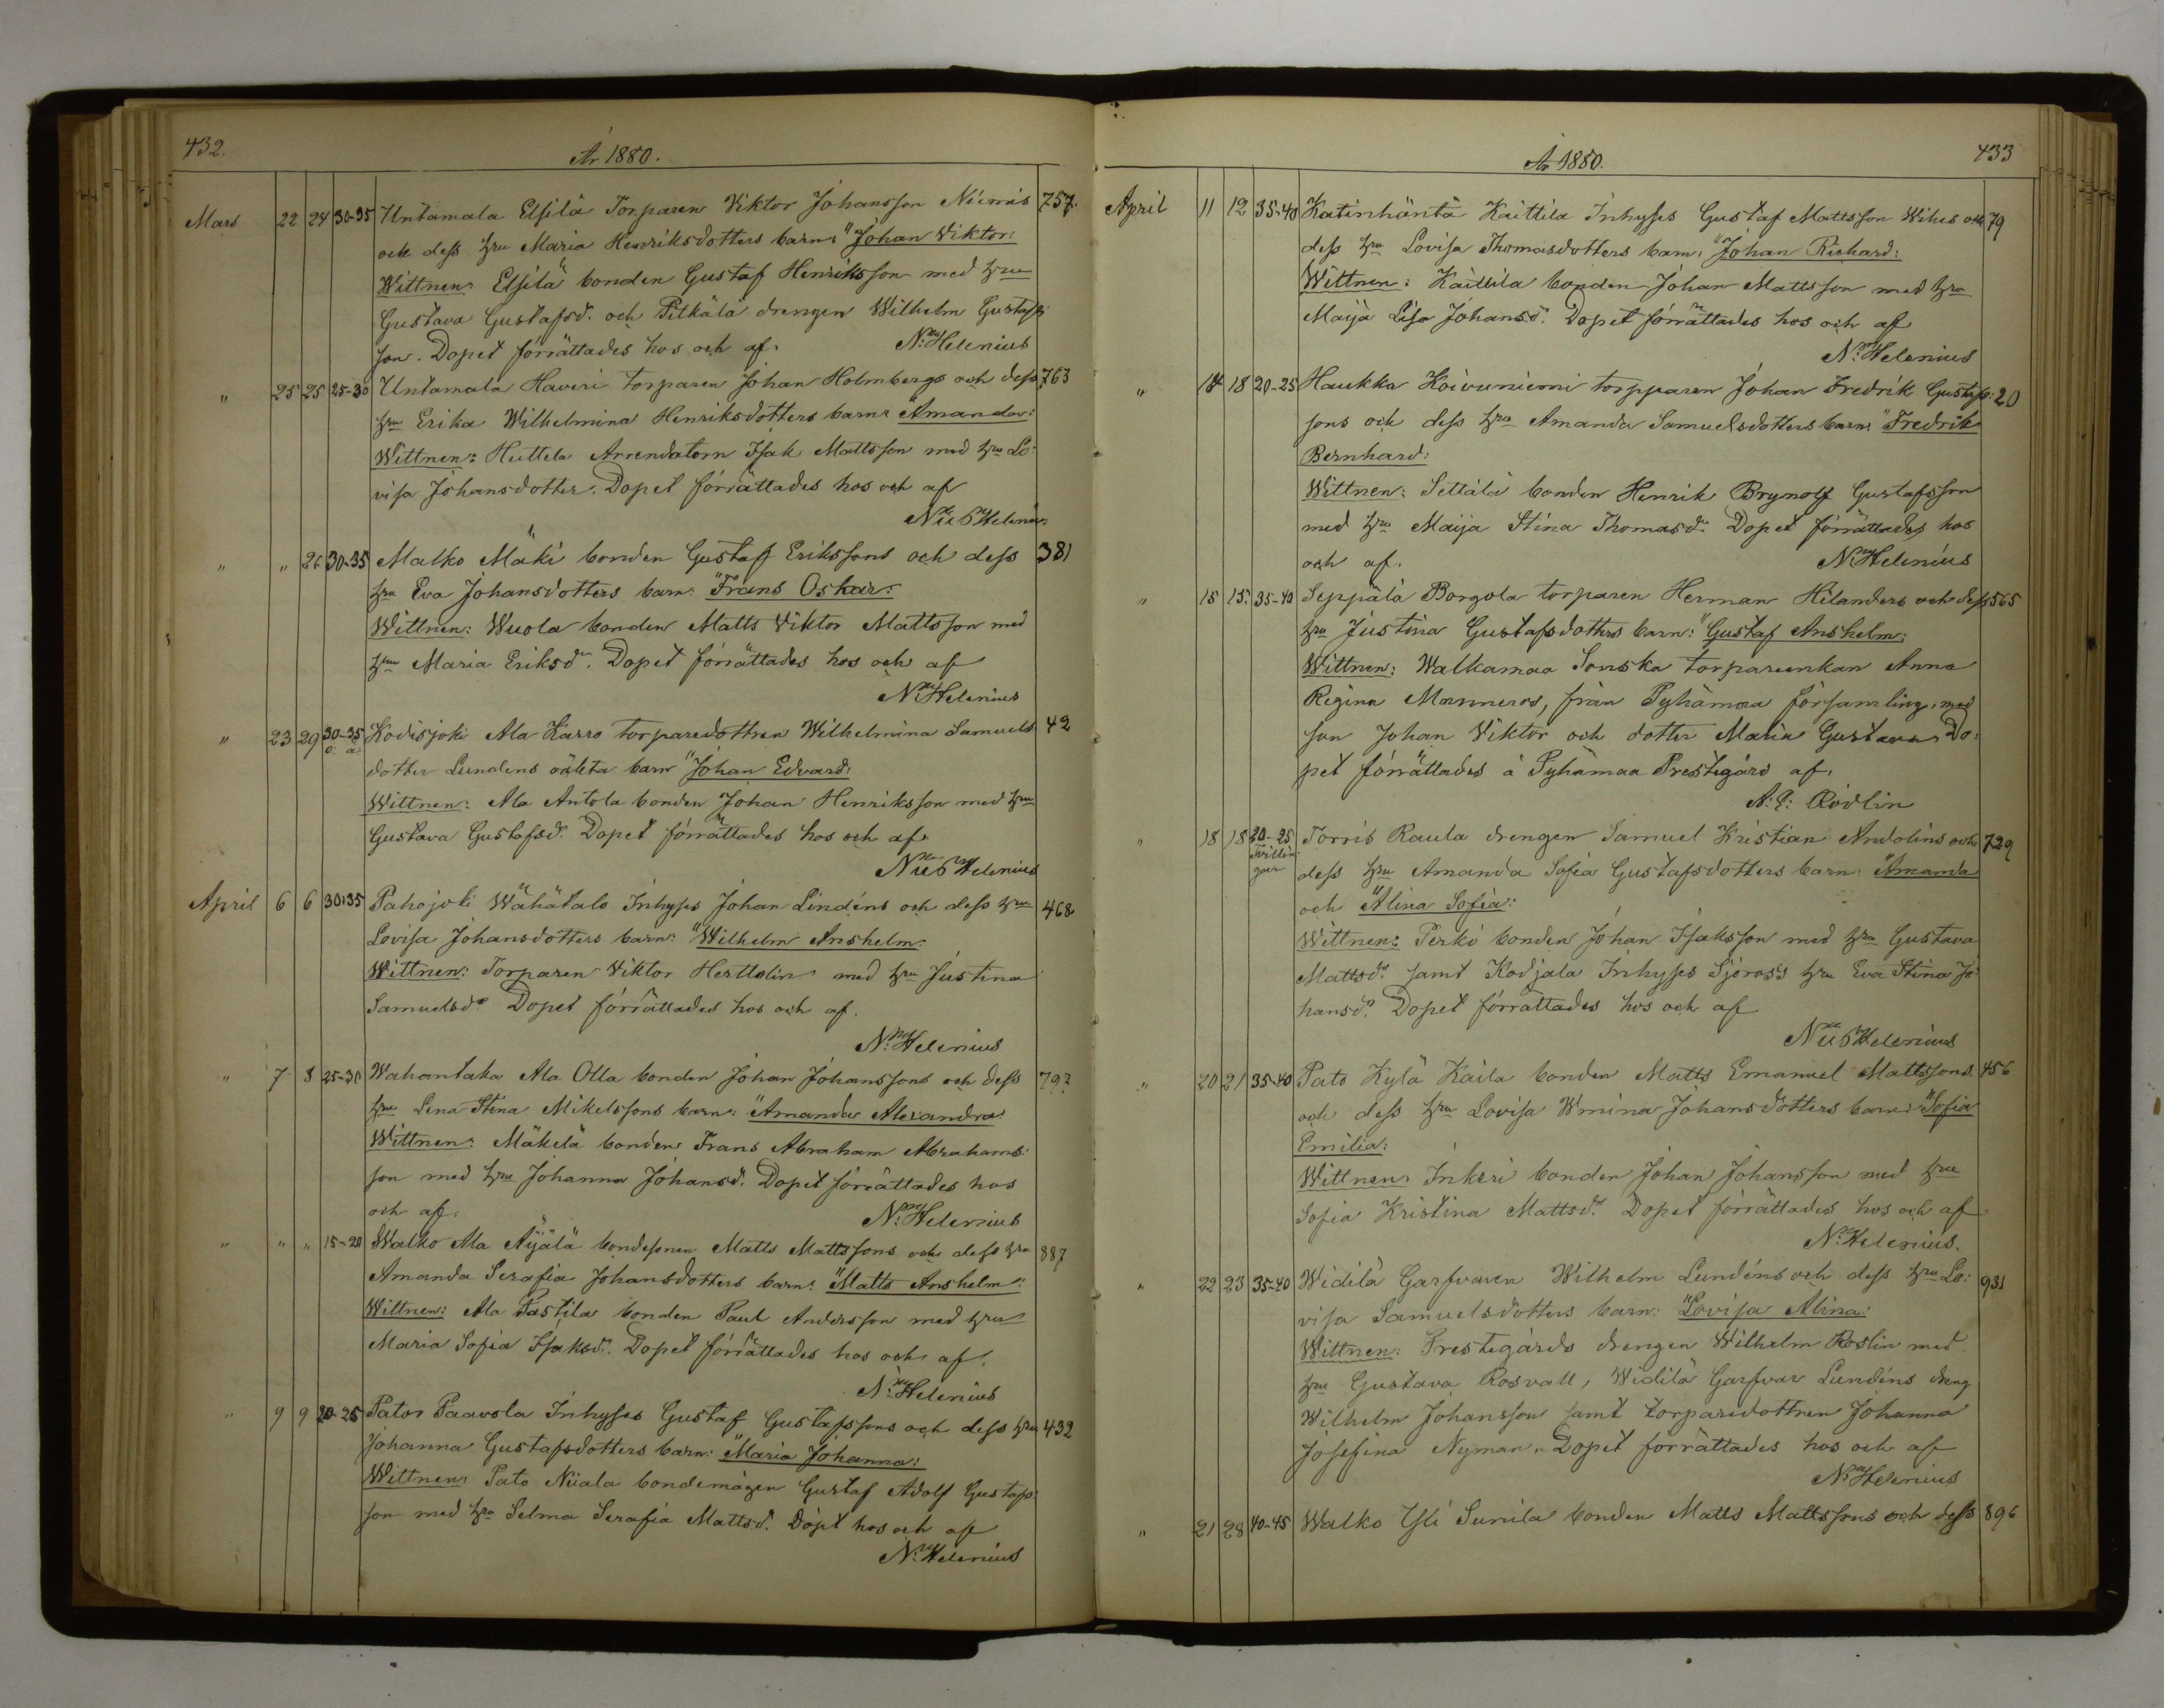 432.
År 1880.
Mars 22 24 30-35 Untamala Elsilä Torparen Viktor Johansson Niemis 757.
och dess hru Maria Henriksdotters barn: "Johan Viktor:
Wittnen: Elsilä bonden Gustaf Henriksson med hru
Gustava Gustafsd. och Pitkälä drengen Wilhelm Gustafs:
son. Dopet förrättades hos och af. N: Helenius
" 25 25 25-30 Untamala Haveri torparen Johan Holmbergs och dess 763
hru Erika Wilhelmina Henriksdotters barn: Amanda:
Wittnen: Huttela Arrendatorn Isak Mattsson med hru Lo:
visa Johansdotter. Dopet förrättades hos och af
Helenius
" " 26 30-35 Malko Mäki bonden Gustaf Erikssons och dess 381
hru Eva Johansdotters barn: "Frans Oskar:
Wittnen: Wuola bonden Matts Viktor Mattsson med
hru Maria Eriksdr. Dopet förrättades hos och af
N: Helenius
" 23 29 30-35 Kodisjoki Ala Karro torparedottren Wilhelmina Samuels 42
o. ä.
dotter Lundens oäkta barn "Johan Edvard:
Wittnen: Ala Antola bonden Johan Henriksson med hru
Gustava Gustafsdr. Dopet förrättades hos och af
Helenius
April 6 6 30-35 Pahojoki Wähätalo Inhyses Johan Lindéns och dess hru 468
Lovisa Johansdotters barn: "Wilhelm Anshelm:
Wittnen: Torparen Viktor Herttolin med hru Justina
Samuelsdr Dopet förrättades hos och af.
N: Helenius
" 7 8 25-30 Wahantaka Ala Olla bonden Johan Johanssons och dess 792
hru Lena Stina Mikelssons barn: "Amanda Alexandra:
Wittnen: Mäkelä bonden Frans Abraham Abrahams:
son med hru Johanna Johansd. Dopet förrättades hos
och af. N: Helenius
" " " 15-20 Walko Ala Äijälä bondesonen Matts Mattssons och dess hru 887
Amanda Serafia Johansdotters barn: "Matts Anshelm:
Wittnen: Ala Pastila bonden Paul Andersson med hru
Maria Sofia Isaksdr. Dopet förrättades hos och af.
N: Helenius
" 9 9 20-25 Pato Paavola Inhyses Gustaf Gustafssons och dess hru 432
Johanna Gustafsdotters barn: "Maria Johanna:
Wittnen: Pato Niiala bondemågen Gustaf Adolf Gustafs:
son med hru Selma Serafia Mattsd. Döpt hos och af
N: Helenius
433
År 1880.
April 11 12 35-40 Katinhäntä Kaittila Inhyses Gustaf Mattsson Wihes och 79
dess hru Lovisa Thomasdotters barn: "Johan Richard:
Wittnen: Kaittila bonden Johan Mattsson med hru
Maija Lisa Johansdr. Dopet förrättades hos och af
N: Helenius
" 14 18 20-25 Haukka Koivuniemi torpparen Johan Fredrik Gustafs: 20
sons och dess hru Amanda Samuelsdotters barn: "Fredrik
Bernhard:
Wittnen: Settälä bonden Henrik Brynolf Gustafsson
med hru Maija Stina Thomasdr Dopet förrättades hos
och af. N: Helenius
" 15 15 35-40 Seppälä Borgola torparen Herman Hilanders och dess 565
hru Justina Gustafsdotters barn: "Gustaf Anshelm:
Wittnen: Walkamaa Sonska torpareenkan Anna
Regina Manneros, från Pyhämaa församling, med
son Johan Viktor och dotter Maria Gustava. Do:
pet förrättades å Pyhämaa Prestegård af.
A: E: Rödlin
" 18 18 20-25 Torris Raula drengen Samuel Kristian Andolins och 729
Tvillin
gar
dess hru Amanda Sofia Gustafsdotters barn: "Amanda
och "Alina Sofia:
Wittnen: Perko bonden Johan Isaksson med hru Gustava
Mattsdr. samt Kodjala Inhyses Sjöross hru Eva Stina Jo:
hansdr. Dopet förrättades hos och af
Helenius
" 20 21 35-40 Pato Kylä Kaila bonden Matts Emanuel Mattssons 456
och dess hru Lovisa Wmina Johansdotters barn: "Sofia
Emilia:
Wittnen: Inkeri bonden Johan Johansson med hru
Sofia Kristina Mattsdr. Dopet förrättades hos och af
N: Helenius.
" 22 23 35-40 Widilä Garfvaren Wilhelm Lundéns och dess hru Lo: 931
visa Samuelsdotters barn: "Lovisa Alina:
Wittnen: Prestegårds drengen Wilhelm Roslin med
hru Gustava Rosvall, Widilä Garfvar Lundéns dreng
Wilhelm Johansson samt torparedottren Johanna
Josefina Nyman. Dopet förrättades hos och af
N: Helenius
" 21 28 40-45 Walko Yli Sunila bonden Matts Mattssons och dess 896